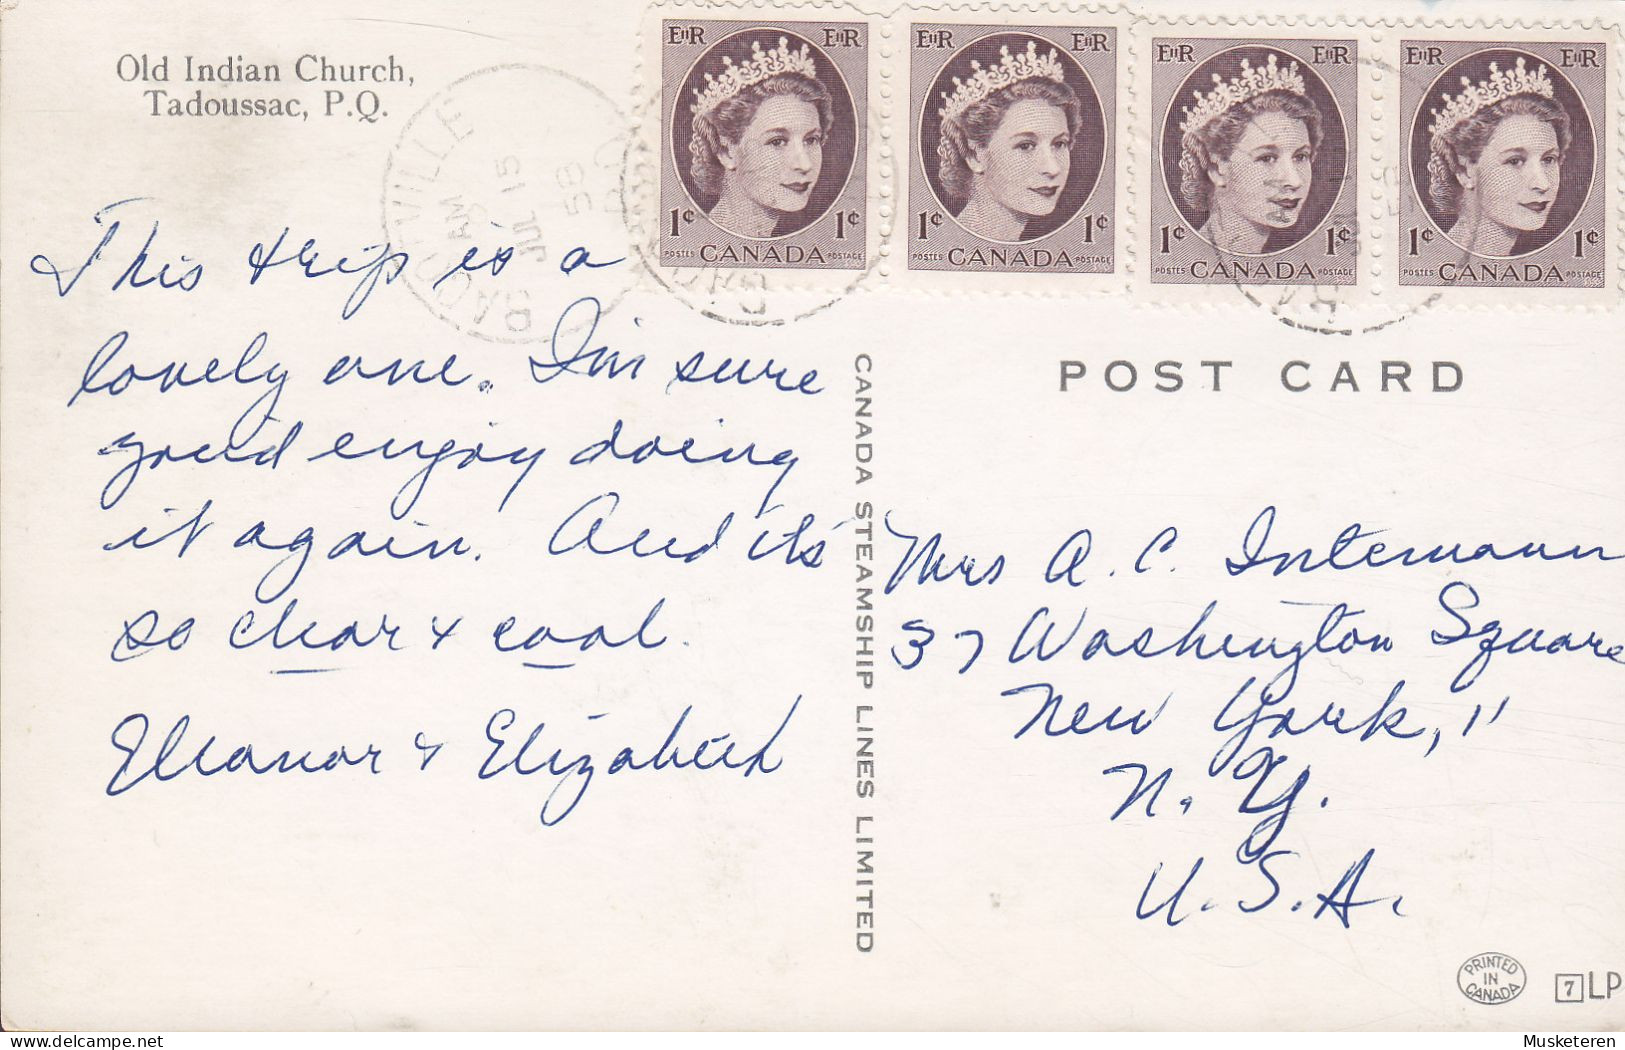 Old Indian Church,
Tadoussac, P.Q.
This trip is a
lovely one. I'm sure
you'd enjoy doing
it again. And it's
so clear & cool.
Eleanor & Elizabeth
CANADA STEAMSHIP LINES LIMITED
EIIR EIIR
1¢ 1¢
POSTES CANADA POSTAGE
EIIR EIIR
1¢ 1¢
POSTES CANADA POSTAGE
EIIR EIIR
1¢ 1¢
POSTES CANADA POSTAGE
EIIR EIIR
1¢ 1¢
POSTES CANADA POSTAGE
AM
JUL 15
58
POST CARD
Mrs A. C. Intemann
37 Washington Square
New York, 11
N. Y.
U. S. A.
PRINTED
IN
CANADA
7 LP
Musketeren